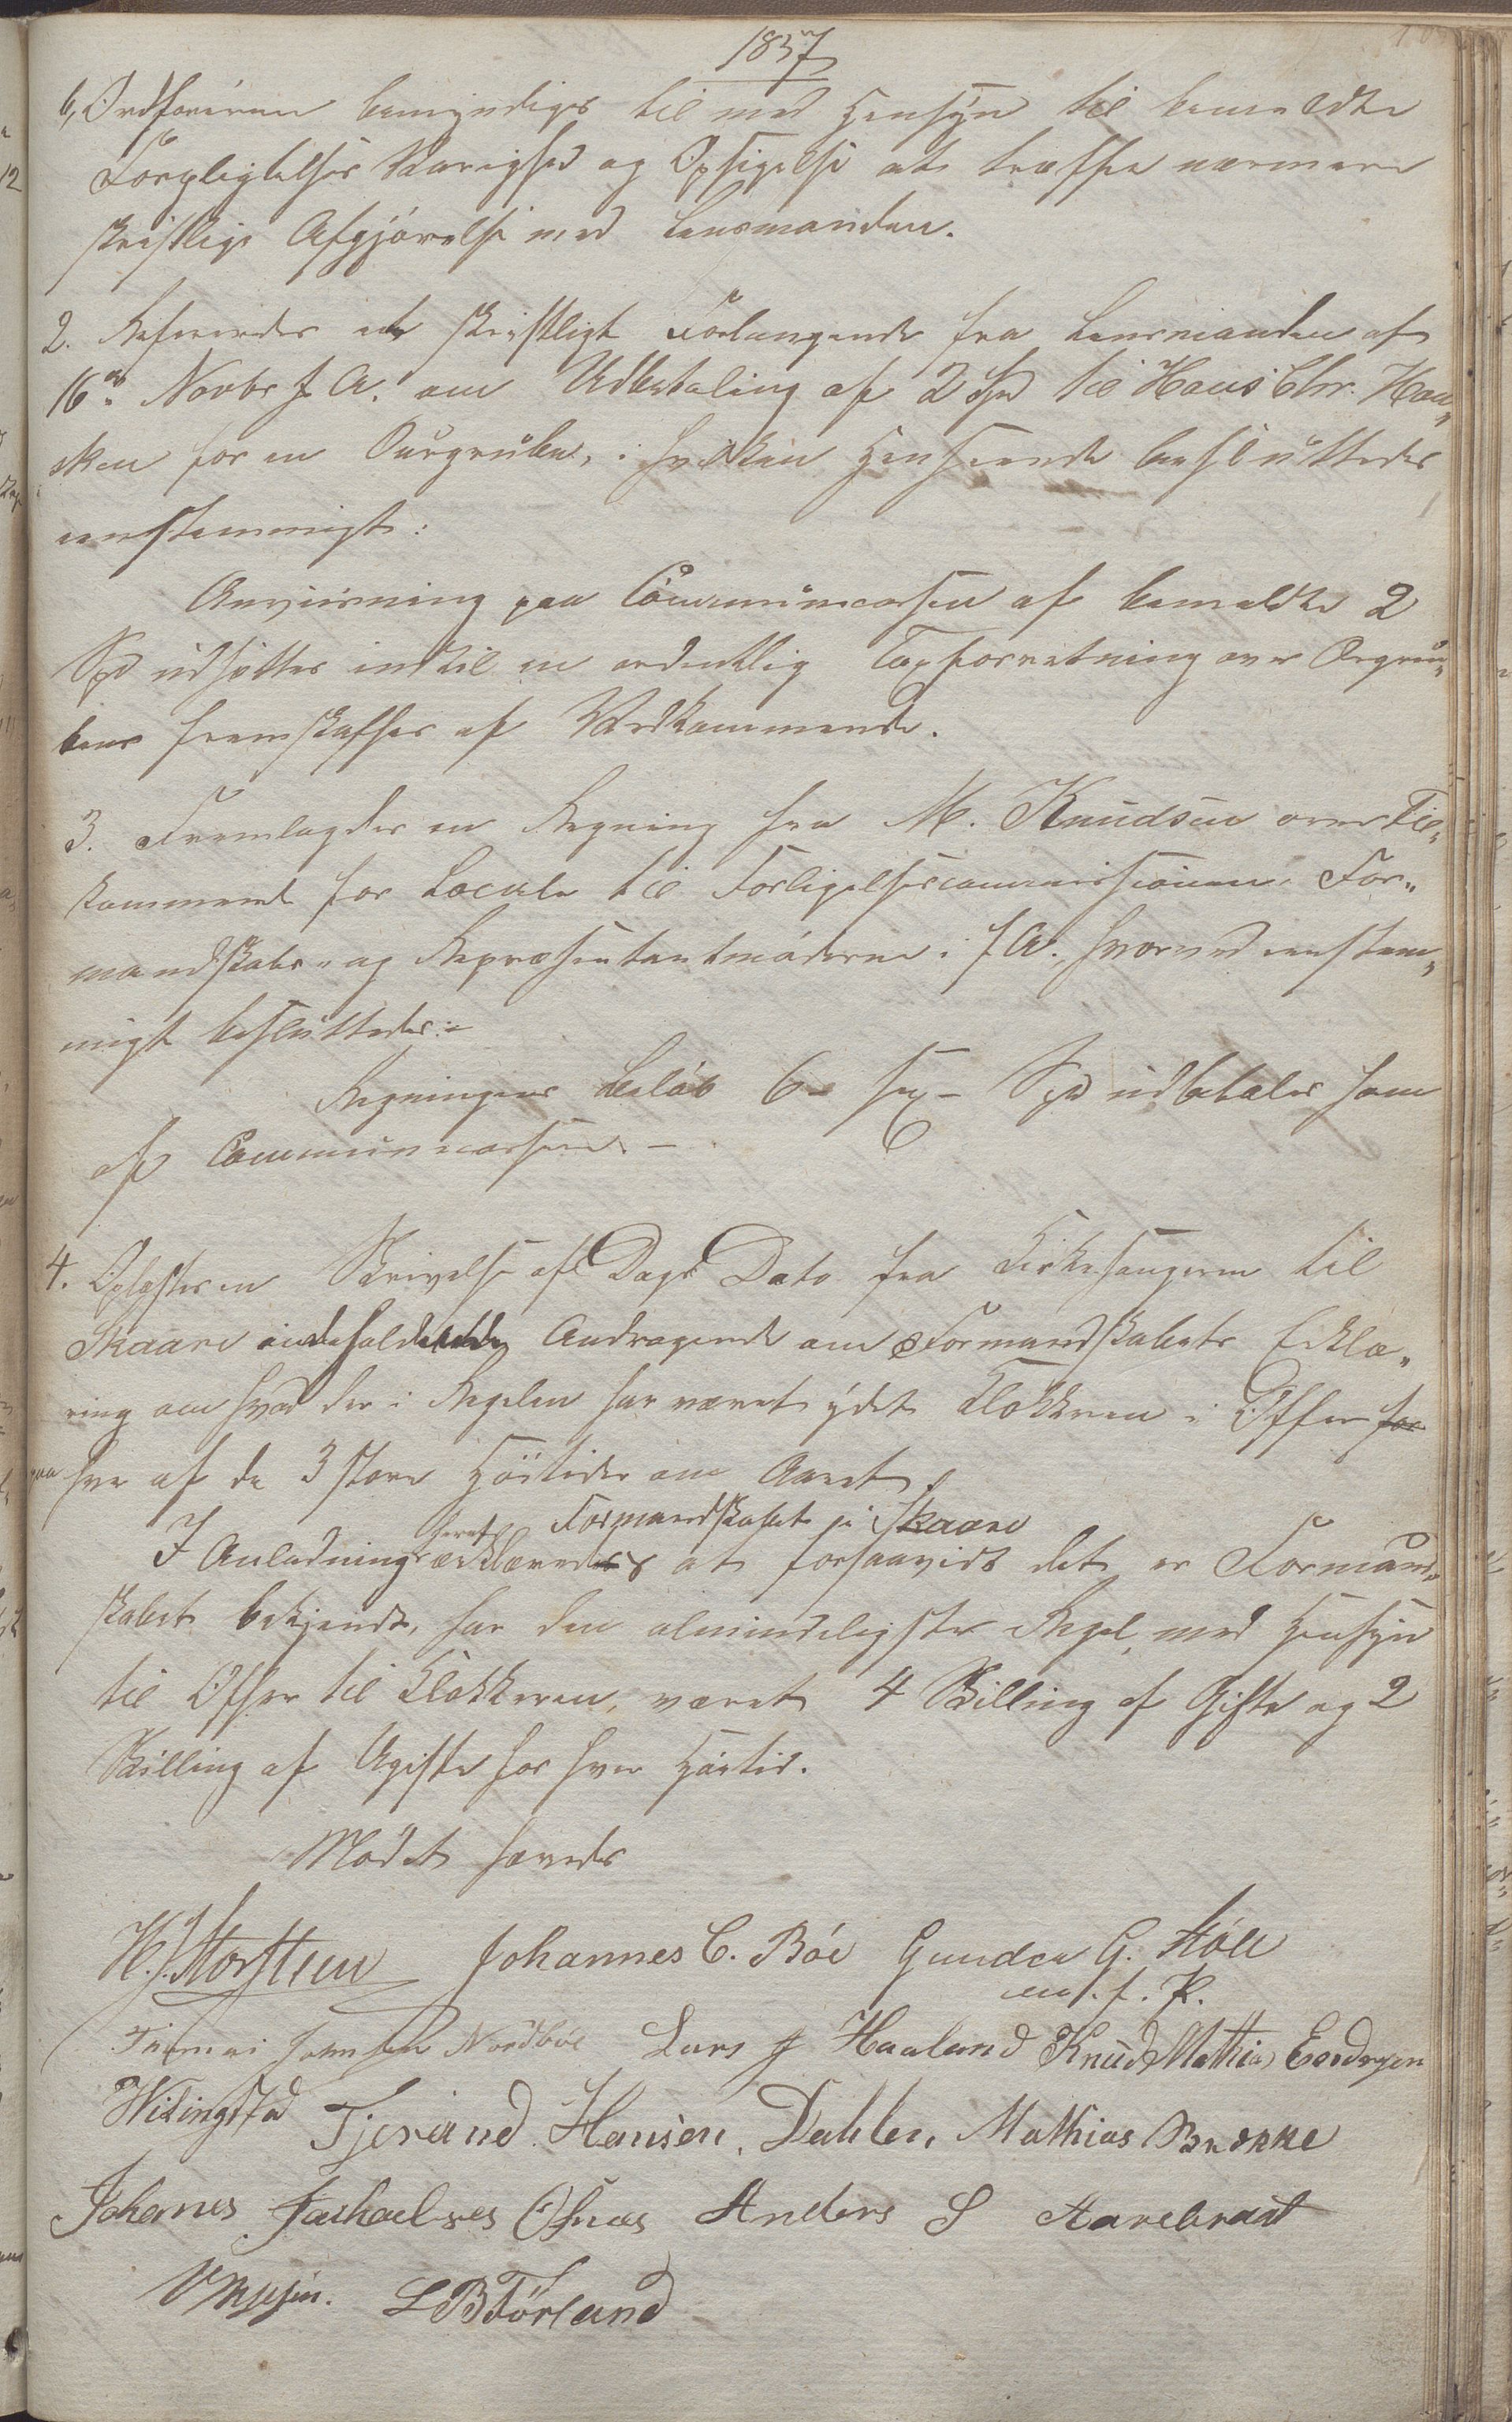 1857
b, Ordføreren bemyndiges til med Hensyn til bemeldte
Forpligtelses Varighed og Opsigelse at træffe nærmere
skriftlige Afgjørelse med Lensmanden.
2. Refereredes et skriftligt Forlangende fra Lensmanden af
16de Novbr f. A. om Udbetaling af 2 Spd til Hans Chr. Hau„
sken for en Ourgrube, i hvilken Henseende besluttedes
eenstemmigt:
Anviisning paa Communecassen af bemeldte 2
Spd udsættes indtil en ordentlig Taxforretning over Orgru„
bens fremskaffes af Vedkommende.
3. Fremlagdes en Regning fra M. Knudsen over Til„
kommende for Locale til Forligelsescommissionen, For„
mandskabs- og Repræsentantmøderne i f. A., hvorved eenstem„
migt besluttedes:
Regningens Beløb 6 - sex - Spd udbetales ham
af Communecassen. -
4. Oplæstes en Skrivelse af Dags Dato fra Kirkesangeren til
Skaare indeholdende Andragende om Formandskabets Erklæ„
ring om hvad der i Regelen har været ydet Klokkeren i Offer for
paa hver af de 3 store Høitider om Aaret.
heraf Formandskabet i Skaare
I Anledning erklæredes at forsaavidt det er Formand„
skabet bekjendt, har den almindeligste Regel, med Hensyn
til Offer til Klokkeren, været 4 Skilling af Gifte og 2
Skilling af Ugifte for hver Høitid.
Mødet hævedes
H. J. Storsteen Johannes C. Böe Gunder G. Höie
m. f. P.
Johnsen Nordböe Lars J Haaland Knud Mathias Endresen
Widingstad Tjerand Hansen. Dahlen. Mathias Brekke
Johanes Jackaelses Osnes Anders S Aarebraat
L B Förland